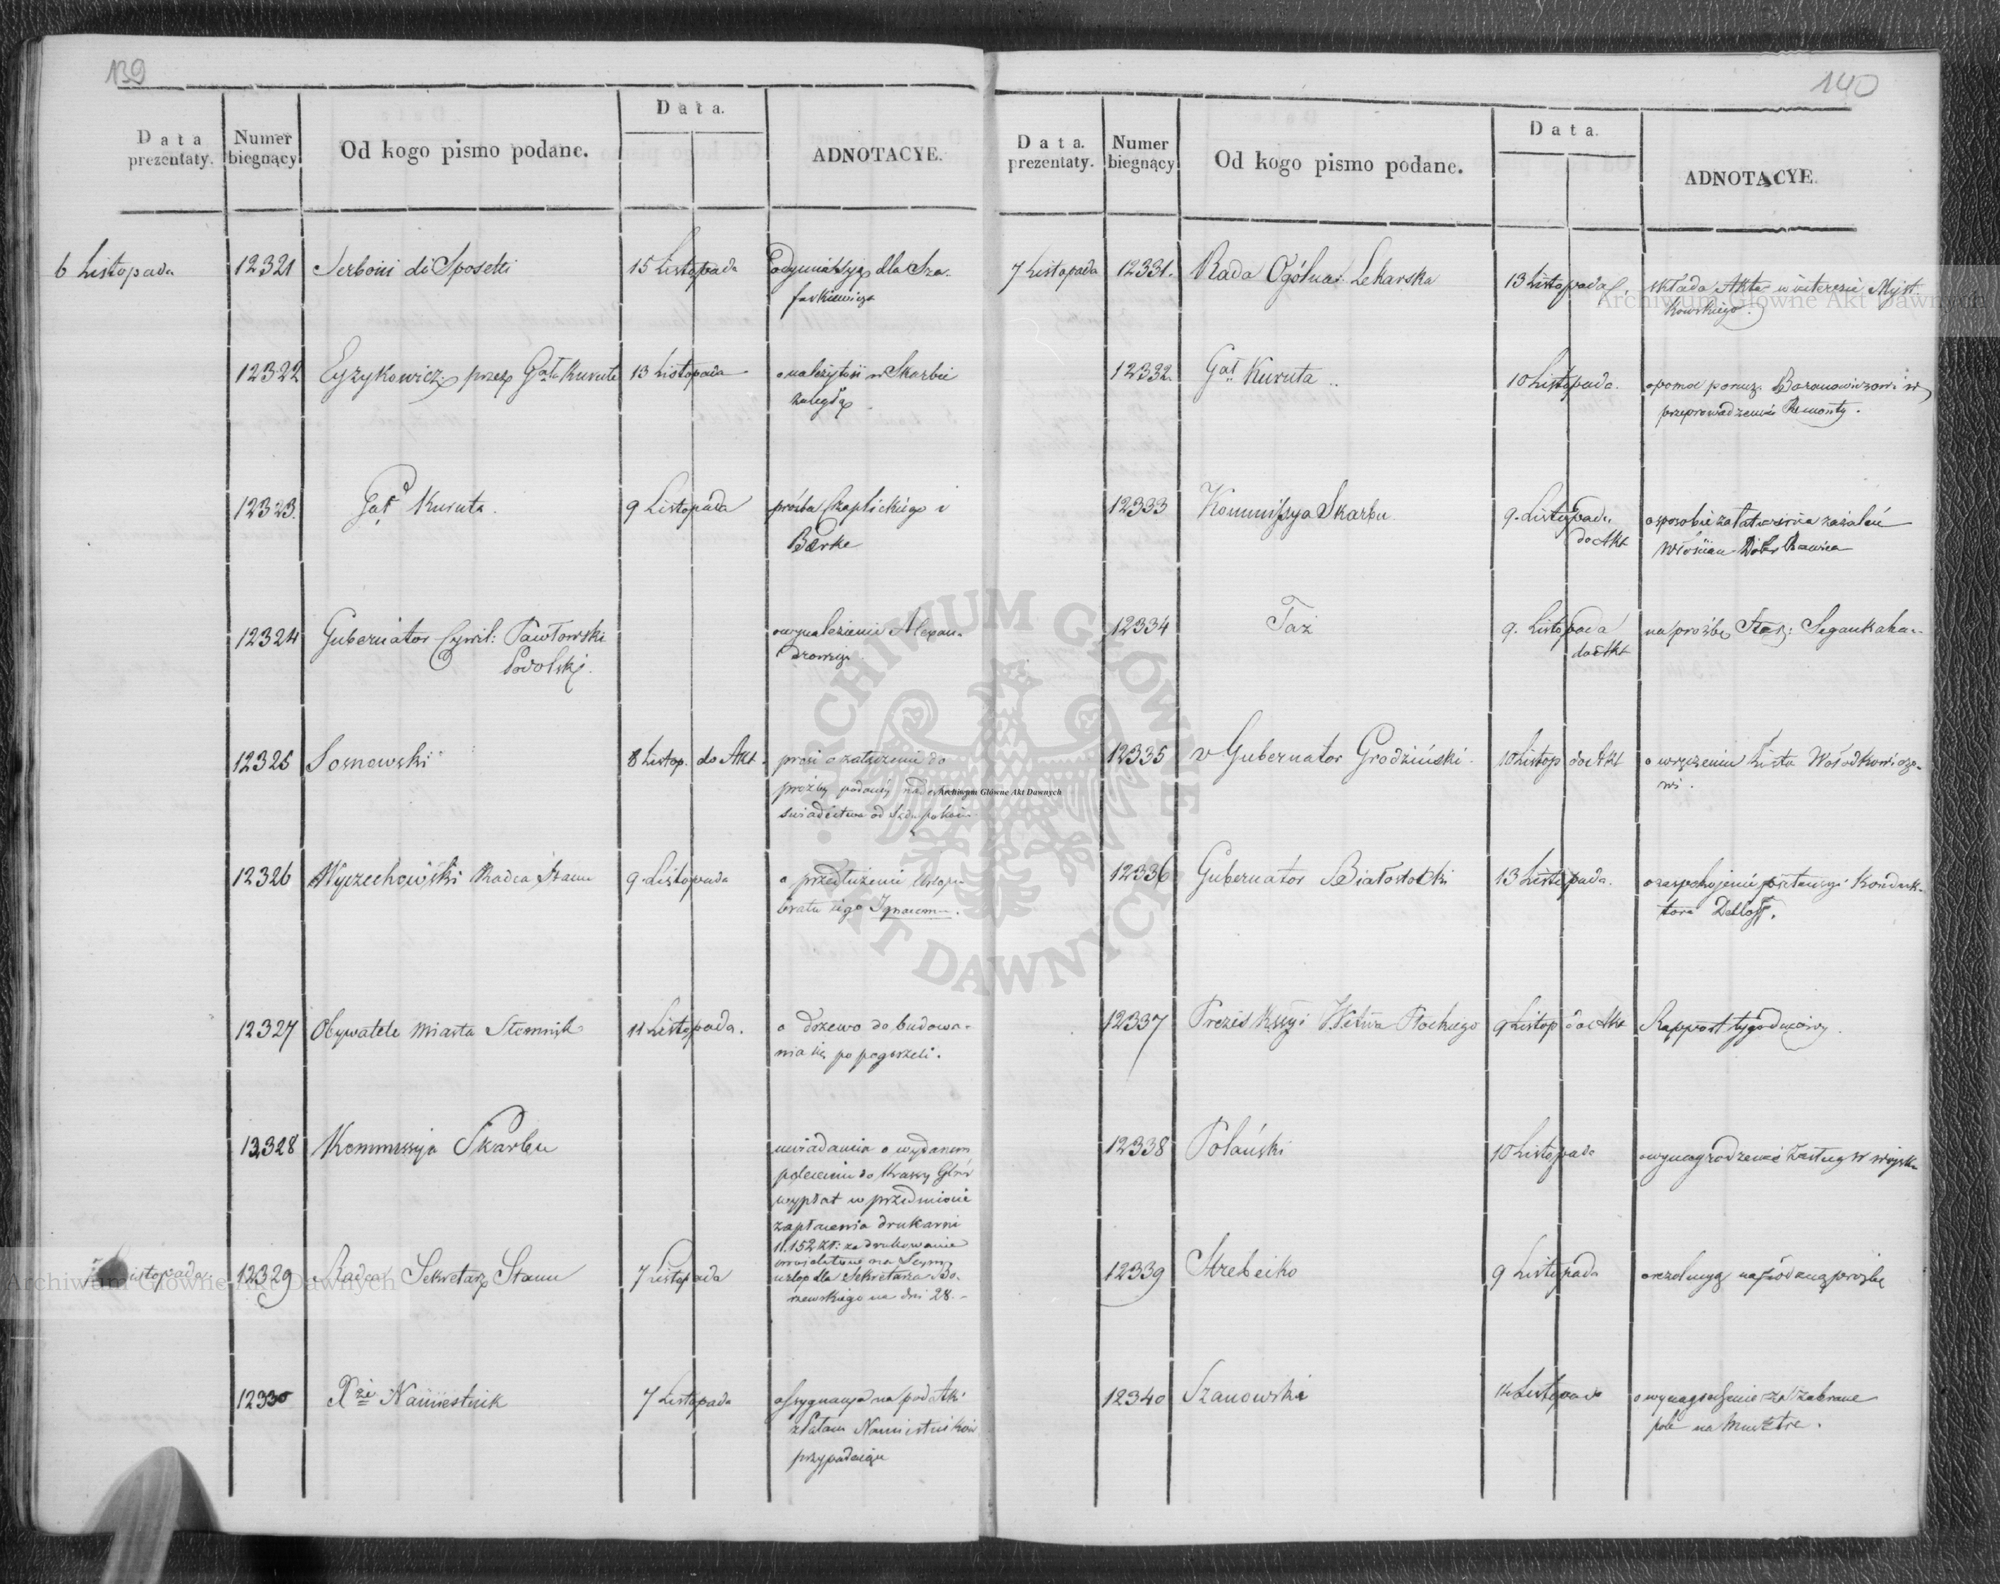 139
Data prezentaty.
Numer biegnący
Od kogo pismo podane.
Data.
ADNOTACYE.
6 Listopada
12321
Serboni di Sposetti
15 Listopada
dla Sza-
farkiewicza
12322
Eyzykowicz przez Gała Kurutę
13 Listopada
o należytość w Skarbie
zaległą
12323.
Gał Kuruta.
9 Listopada
prośba Czaplickiego i
Berke
12324
Gubernator Cywil: Pawłowski
Podolski.
o wynalezienie Alexan-
drowicza
12325
Sosnowski
8 Listop. do Akt.
prosi o załączenie do
prośby podanéj
świadectwa od
12326
Wyczechowski Radca Stanu
9 Listopada
o przedłużenie Urlopu
bratu jego Ignacemu.
12327
Obywatele Miasta Słomnik
11 Listopada.
o drzewo do budowa-
nia się po pogorzeli.
12328
Kommissya Skarbu
uwiadamia o wydanem
poleceniu do Kassy Głów
wypłat w przedmiocie
zapłacenia drukarni
11.152 Zł: za drukowanie
na Seym
7 Listopada
12329
Radca Sekretarz Stanu
7 Listopada
urlop dla Sekretarza Bo-
rzewskiego na dni 28.-
12330
Xże Namiestnik
7 Listopada
assygnacya na podatki
z Placu Namiestników
przypadające
140
Data. prezentaty.
Numer biegnący
Od kogo pismo podane.
Data.
ADNOTACYE.
7 Listopada
12331.
Rada Ogólna Lekarska
13 Listopada
składa Akta w interesie Mysł-
kowskiego.
12332.
Gał Kuruta
10 Listopada.
o pomoc porucz. Baranowiczowi w
przeprowadzeniu Remonty.
12333
Kommissya Skarbu.
9. Listopada
do Akt
o sposobie załatwienia zażaleń
Włościan Dóbr Rawica
12334
Taż
9. Listopada
do Akt
na prośbę
12335
v Gubernator Grodziński
10 Listop do Akt
o wręczeniu Listu Wołodkowiczo-
wi.
12336
Gubernator Białostocki
13 Listopada.
o zaspokojenie pretensyi Konduk-
tora Dettloff.
12337
Prezes Kssyi Wdztwa Płockiego
9 Listop do Akt
Rapport tygodniowy.
12338
Polański
10 Listopada
o wynagrodzenie zasług w wojsku
12339
Strebeiko
9 Listopada
o rezolucyą na podaną prośbę
12340
Szanowski
14 Listopada
o wynagrodzenie za zabrane
pole na Musztrę.
Archiwum Główne Akt Dawnych
Archiwum Główne Akt Dawnych
Archiwum Główne Akt Dawnych
ARCHIWUM GŁÓWNE AKT DAWNYCH